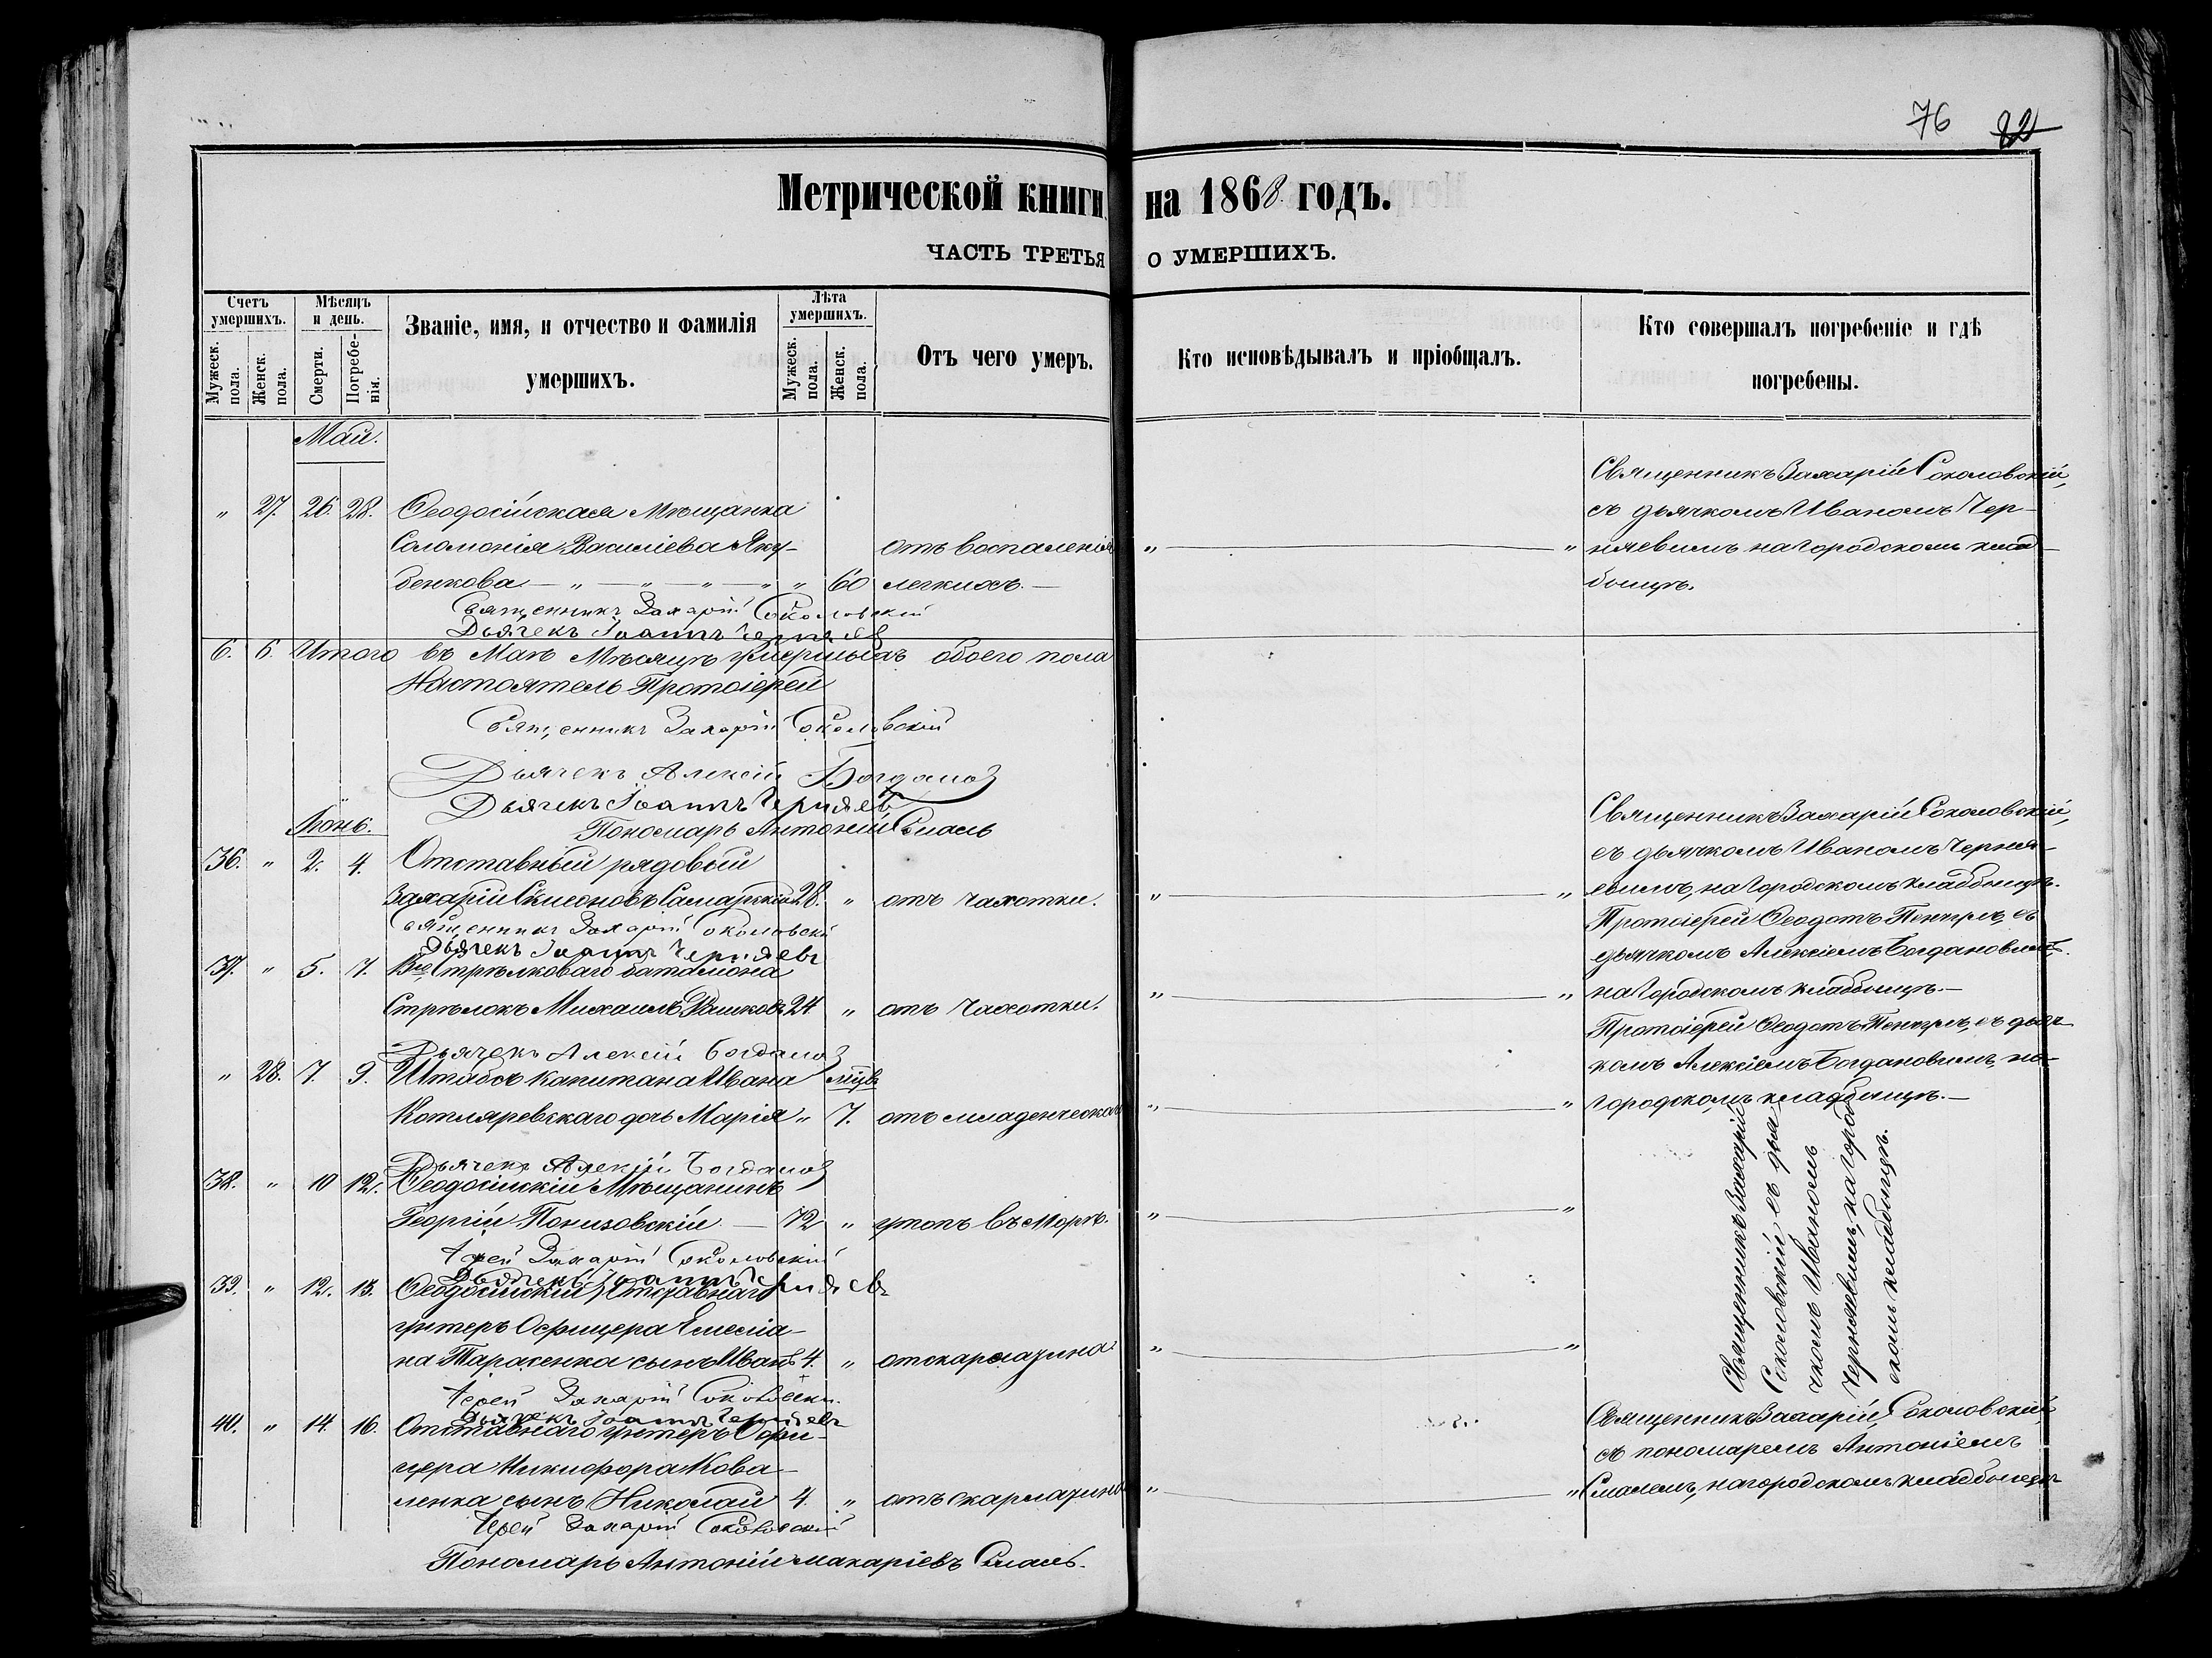 76 82
Метрической книги на 1868 годъ.
ЧАСТЬ ТРЕТЬЯ О УМЕРШИХЪ.
Счетъ умершихъ.
Мужеск. пола.
Женск. пола.
Мѣсяцъ и день.
Смерти.
Погребенія.
Званіе, имя, и отчество и фамилія умершихъ.
Лѣта умершихъ.
Мужеск. пола.
Женск. пола.
Отъ чего умеръ.
Кто исповѣдывалъ и пріобщалъ.
Кто совершалъ погребеніе и гдѣ погребены.
Май.
" 27. 26. 28. Ѳеодосійская мѣщанка
Соломонія Василіева Яку-
бенкова — " — " — " — " " 60 отъ воспаленія
легкихъ. —
" — "
Священникъ Захарій Соколовскій,
съ дьячкомъ Иваномъ Чер-
няевымъ на городскомъ клад-
бищѣ.
Священникъ Захарій Соколовскій
Дьячекъ Іоаннъ Черняев
6. 6. Итого въ Маѣ Мѣсяцѣ умершихъ обоего пола
Настоятель Протоіерей
Священникъ Захарій Соколовскій
Дьячекъ Алексій Богданов
Дьячекъ Іоаннъ Черняев
Пономарь Антоній Смаль
Іюнь.
36. " 2. 4. Отставный рядовый
Захарій Симеоновъ Самарскій 28. " отъ чахотки.
" — "
Священникъ Захарій Соколовскій,
съ дьячкомъ Иваномъ Черня-
евымъ, на городскомъ кладбищѣ.
Священникъ Захарій Соколовскій
Дьячекъ Іоаннъ Черняевъ
37. " 5. 7. Стрѣлковаго баталіона
Стрѣлокъ Михаилъ 24 " отъ чахотки.
" — "
Протоіерей Ѳеодотъ съ
дьячкомъ Алексіемъ Богдановымъ,
на городскомъ кладбищѣ. —
Дьячекъ Алексій Богданов
" 28. 7. 9. Штабсъ капитана Ивана мцв
Котляревскаго дочь Марія " 7. отъ младенческой
" — "
Протоіерей Ѳеодотъ съ дьяч-
комъ Алексіемъ Богдановымъ, на
городскомъ кладбищѣ. —
Дьячекъ Алексій Богданов
38. " 10 12. Ѳеодосійскій Мѣщанинъ
Георгій Понизовскій — 72 " утопъ въ морѣ.
" — "
Іерей Захарій Соколовскій
Дьячекъ Іоаннъ Черняевъ
39. " 12. 13. Ѳеодосійскій Отставнаго
унтеръ Офицера Емеліа-
на Тарасенка сынъ Иванъ 4. " отъ скарлатина
" — "
Священникъ Захарій
Соколовскій съ дья-
чкомъ Иваномъ
Черняевымъ, на город-
скомъ кладбищѣ.
Іерей Захарій Соколовскій
Дьячекъ Іоаннъ Черняевъ
40. " 14. 16. Отставнаго унтеръ Офи-
цера Никифора Кова-
ленка сынъ Николай 4. " отъ скарлатина
" — "
Священникъ Захарій Соколовскій
съ пономаремъ Антоніемъ
Смалемъ, на городскомъ кладбищѣ
Іерей Захарій Соколовскій
Пономарь Антоній Макаріевъ Смаль.